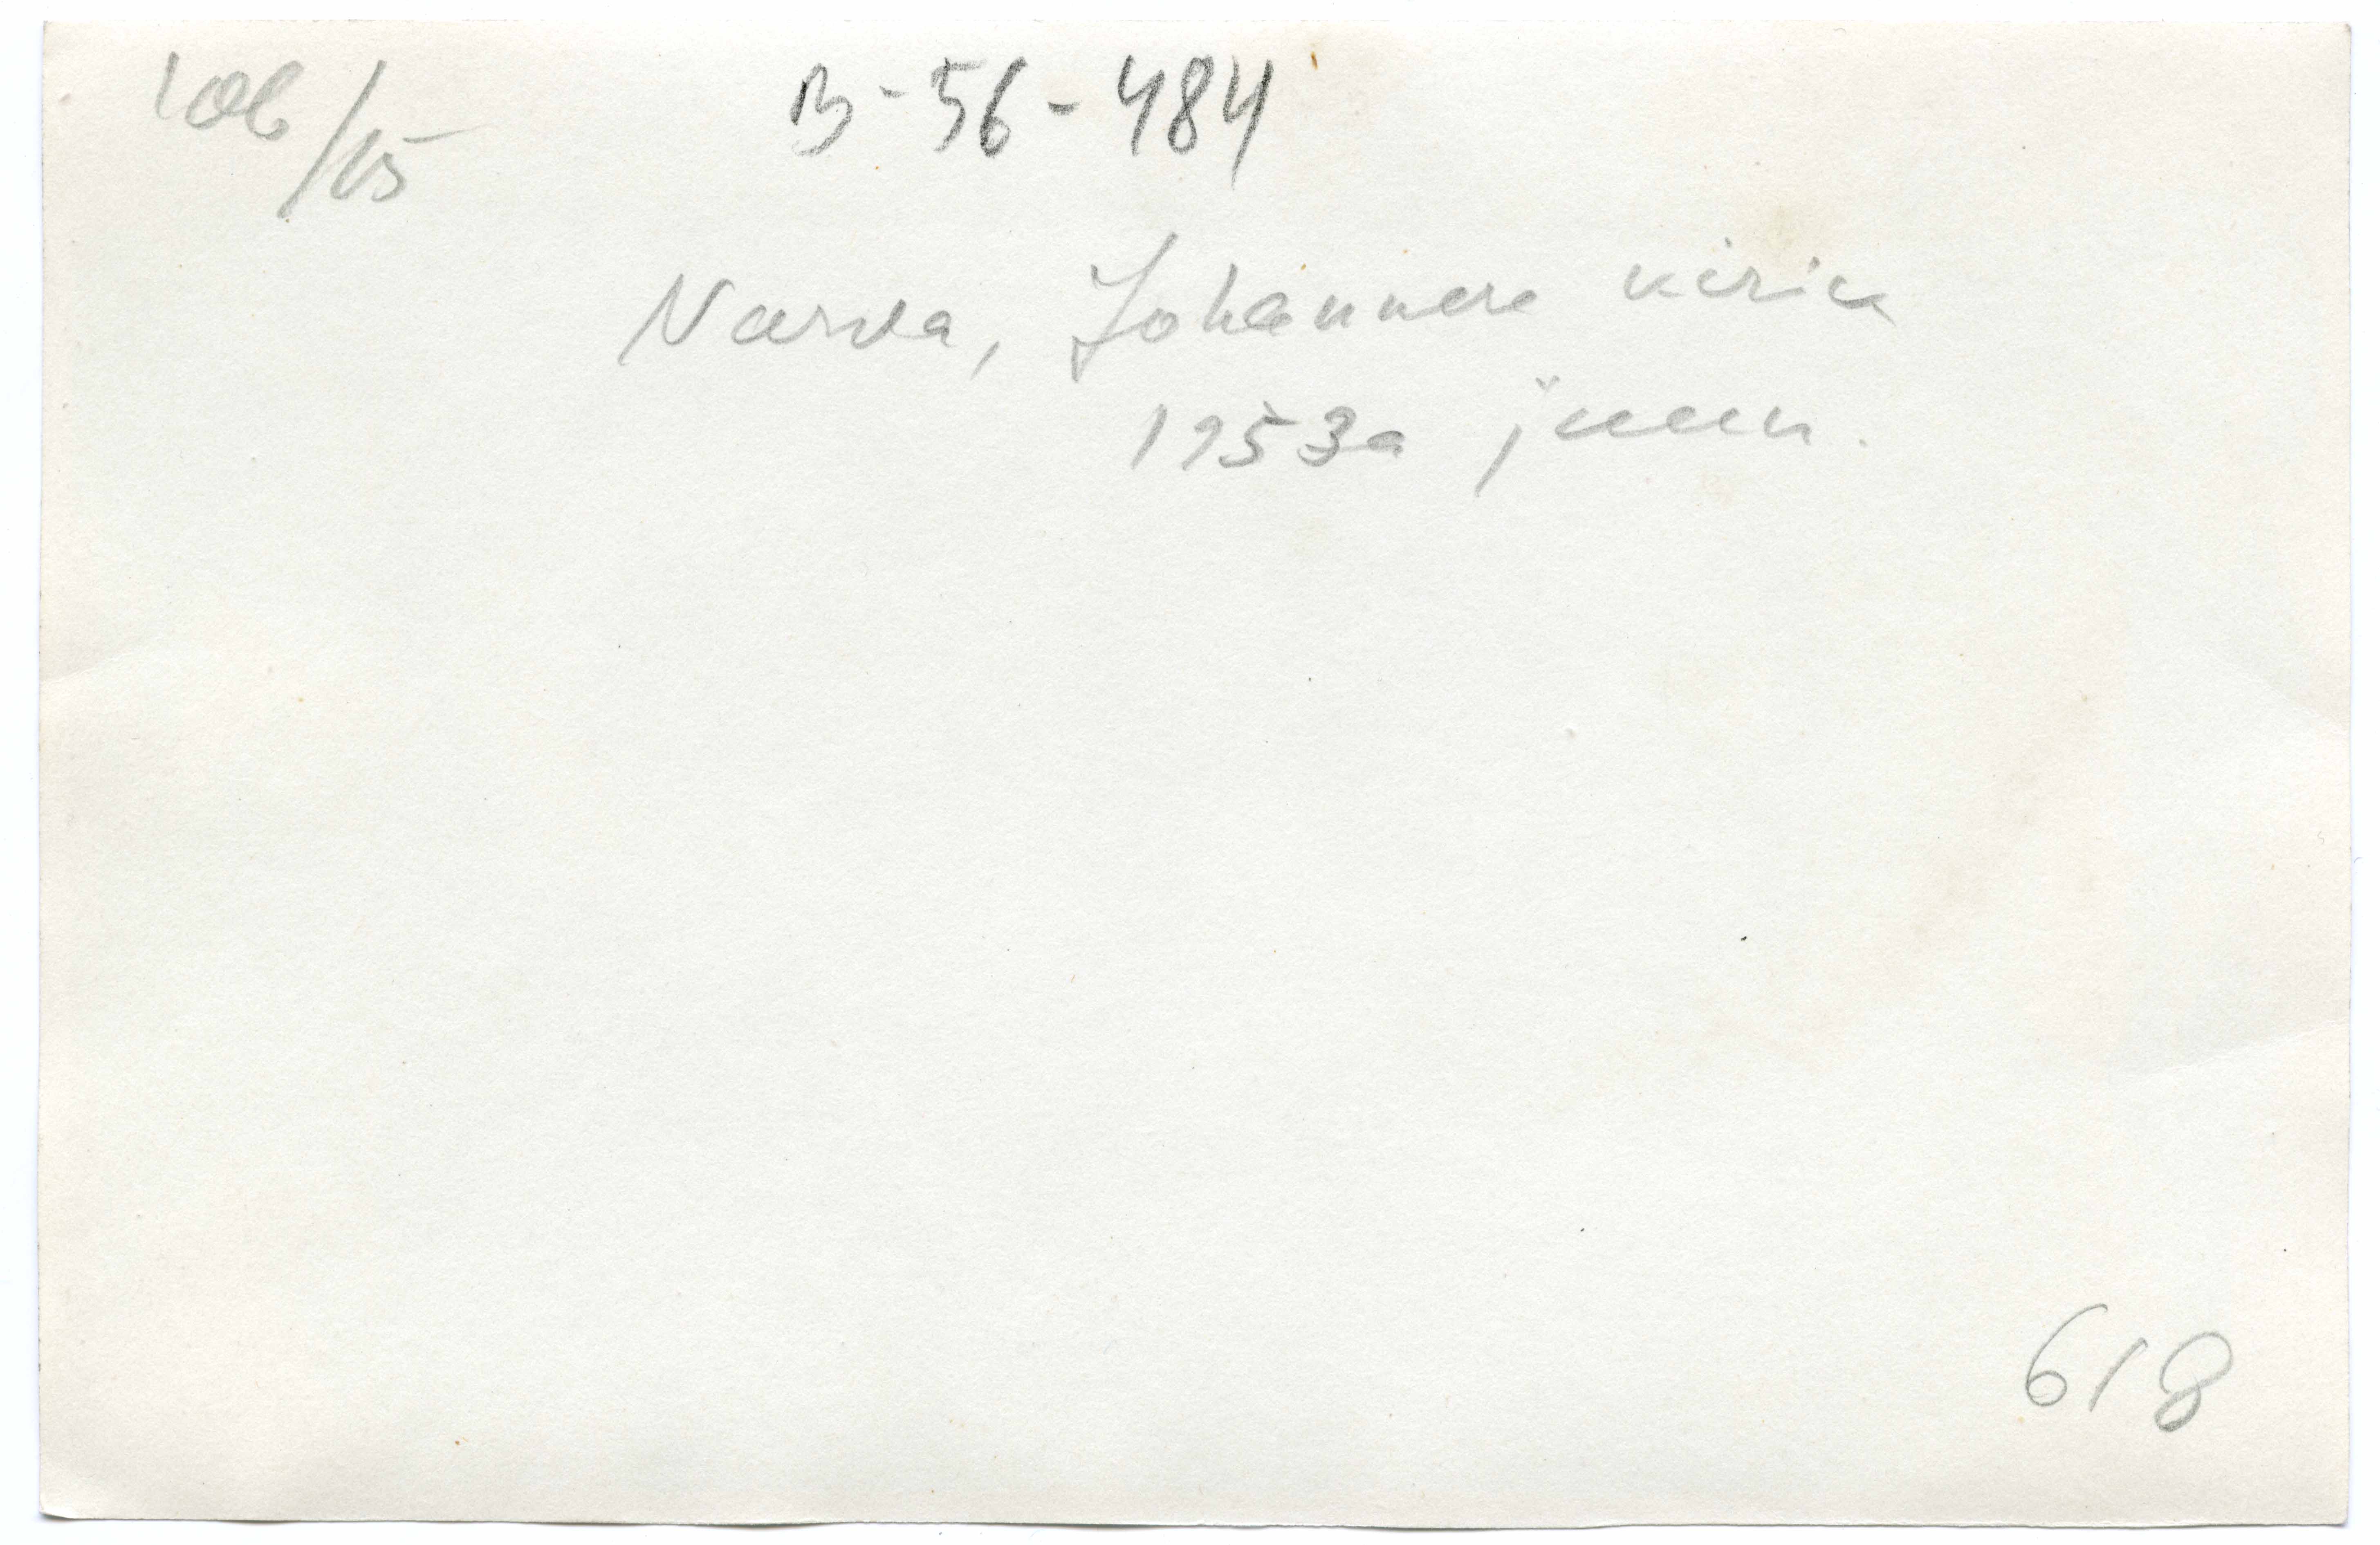 106/15
B-56-484
Narva, Johannese kirik
1953a juuni.
618